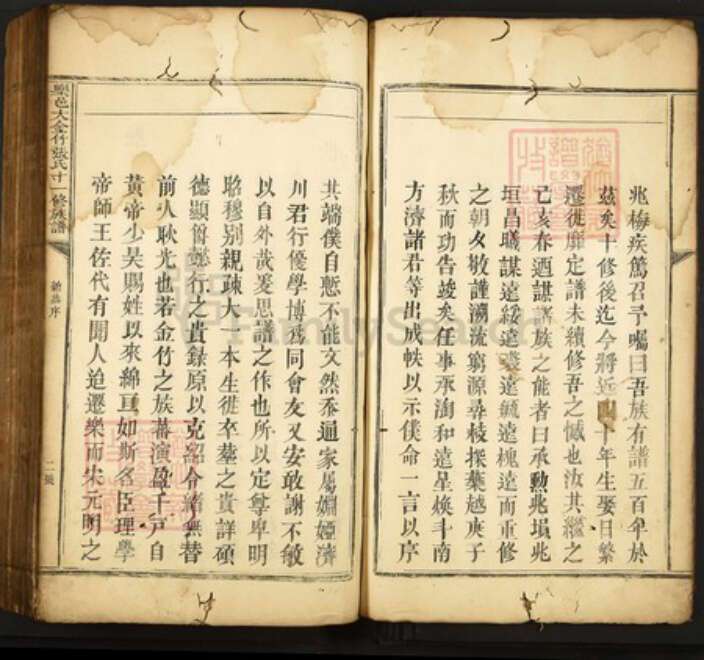 兆梅疾篤召予囑曰吾族有譜五百年於
茲矣十修後迄今將近四十年生娶日繁
遷徙靡定譜未續修吾之憾也汝其繼之
己亥春迺謀諸族之能者曰承勲兆埙兆
垣昌曦謀遠綏遠遠毓遠槐遠而重修
之朝夕敬謹溯流窮源尋枝探葉越庚子
秋而功告竣矣任事承洵和遠星煥斗南
方濟諸君等出成帙以示僕命一言以序
其端僕自慙不能文然忝通家屬姻婭濟
川君行優學博爲同會友又安敢謝不敏
以自外哉爰思譜之作也所以定尊卑明
昭穆別親疎大一本生徙卒塟之貴詳碩
德顯爵懿行之貴錄原以克紹令緒無替
前人耿光也若金竹之族蕃演盈千戸自
黃帝少昊賜姓以來綿亘如斯名臣理學
帝師王佐代有聞人迨遷樂而宋元明之
樂邑大金竹張氏十一修族譜
序
二
FamilySearch